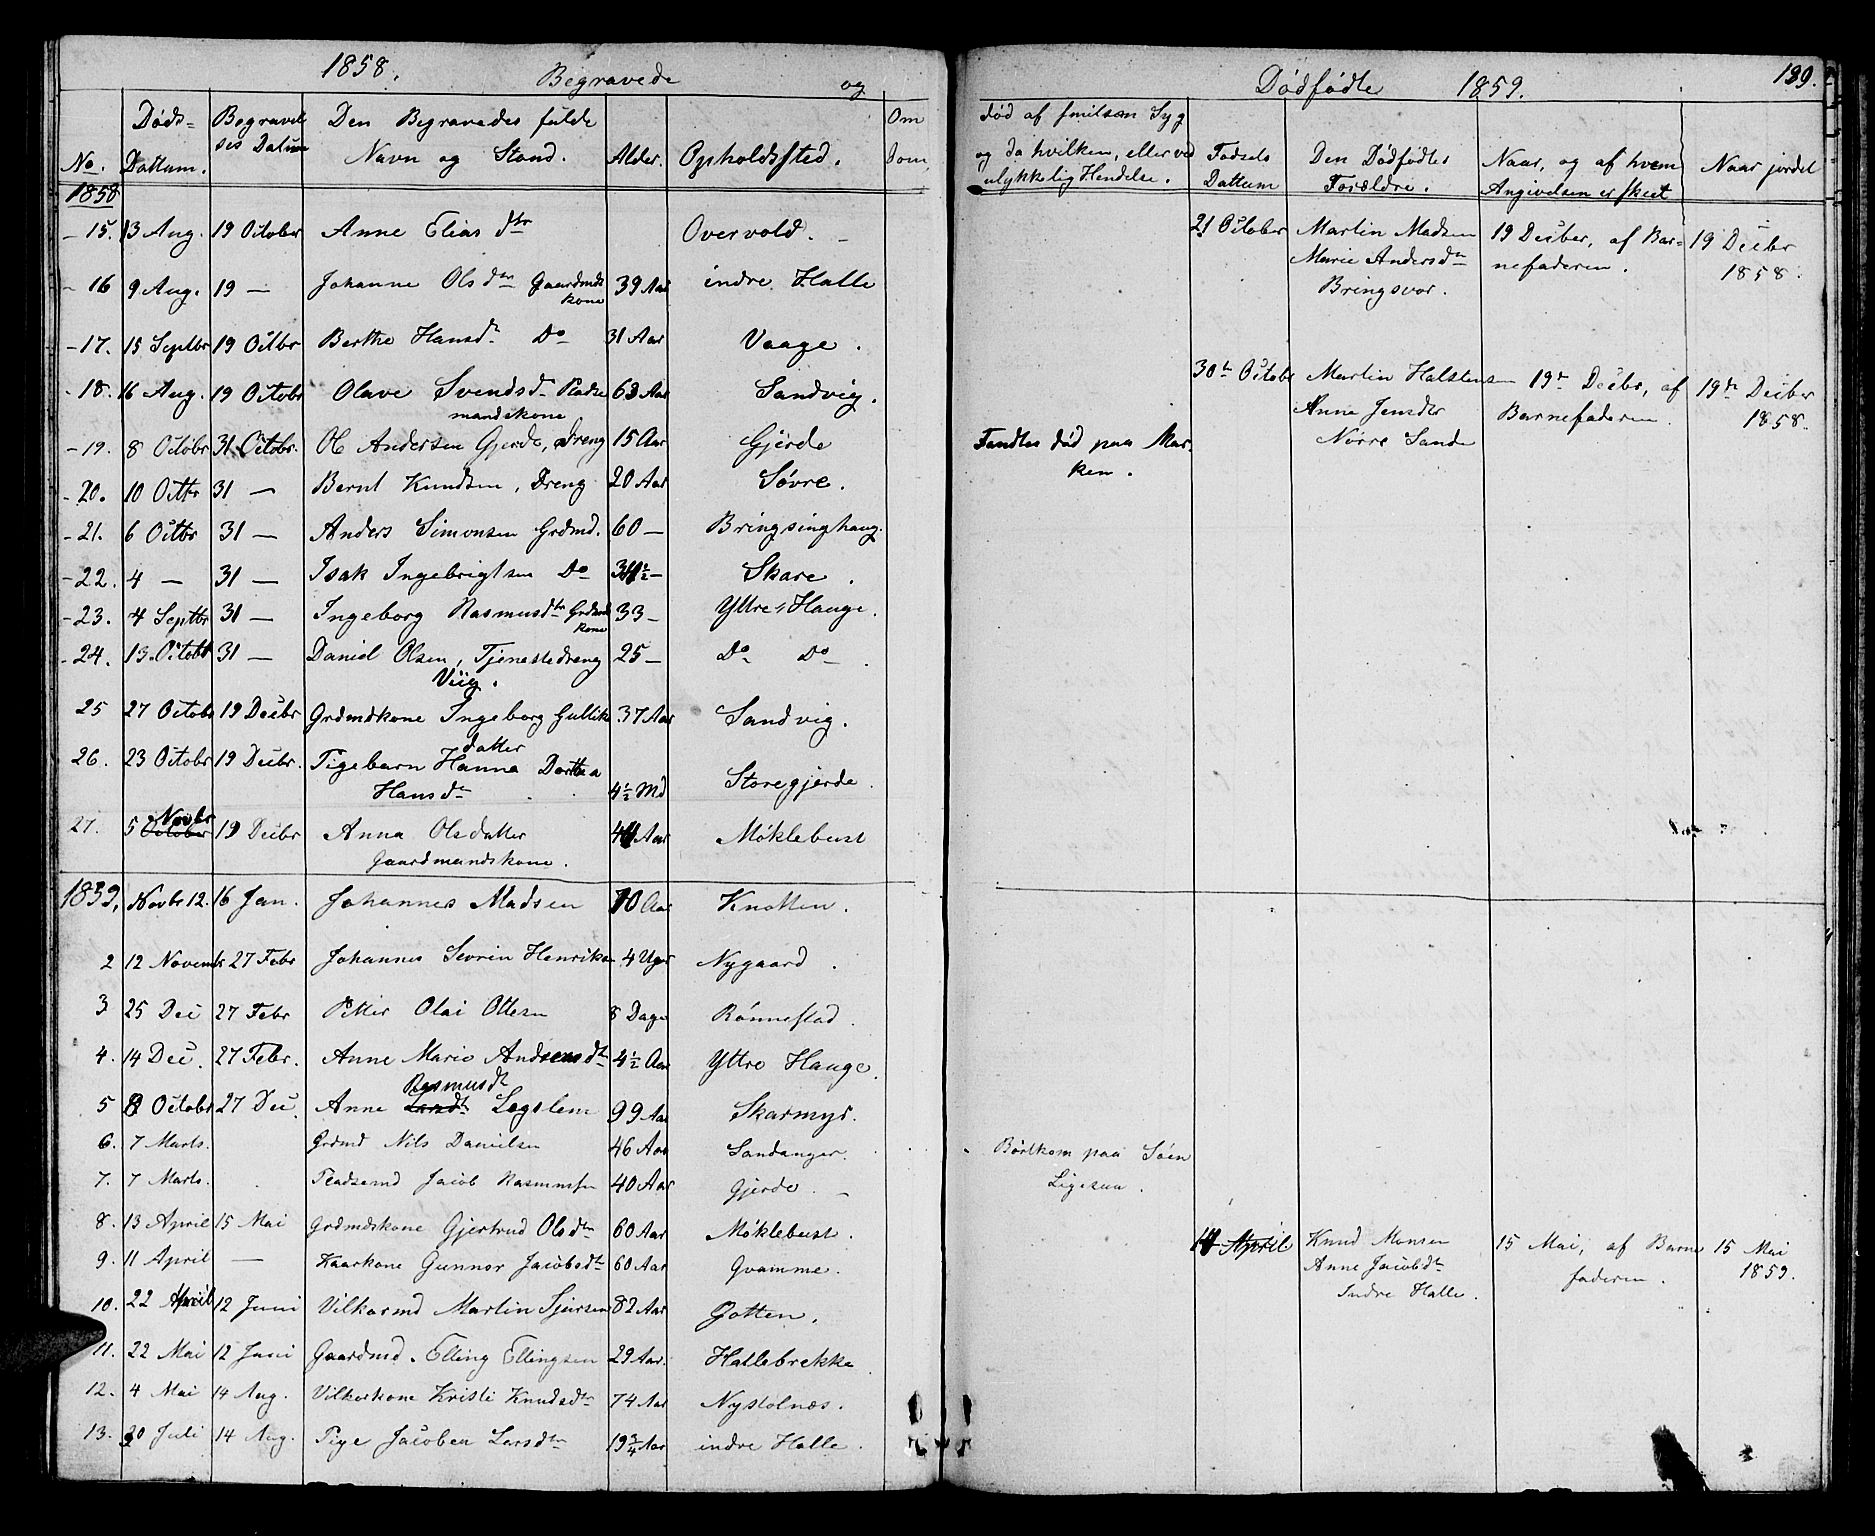 1858. Begravede og
No. Døds- Dattum. Begravel ses Datum Den Begravedes fulde Navn og Stand. Alder. Opholdssted. Om dom
1858
15. 13 Aug. 19 October Anne Elias dtr Overvold.
16 9 Aug. 19 — Johanne Olsdtr Gaardmds kone 39 Aar indre Halle
17. 15 Septbr 19 Octbr Berthe Hansdr Do 31 Aar Vaage.
18. 16 Aug. 19 Octobr Olave Svendsdr Pladse mandskone 63 Aar Sandvig.
19. 8 Octobr 31 Octobr. Ol Andersen Gjerde, dreng 15 Aar Gjerde
20. 10 Octbr 31 — Bernt Knudsen, Dreng 20 Aar Søvre.
21. 6 Octbr 31 — Anders Simonsen Grdmd. 60 — Bringsinghaug.
22. 4 — 31 — Isak Ingebrigtsen Do — Skare.
23. 4 Septbr 31 — Ingeborg Rasmusdtr Grdmds kone 33 — Yttre Hauge.
24. 13 Octobr 31 — Daniel Olsen, Tjenestedreng Viig. 25 — Do Do
25 27 Octobr 19 Decbr Grdmdskone Ingeborg Gulliks datter 37 Aar Sandvig.
26. 23 Octobr 19 Decbr. Pigebarn Hanna Dorthea Hansdtr 4½ Md Storegjerde.
27. 5 October Novbr 19 Decbr Anna Olsdatter Gaardmandskone. Aar Møklebust
1859, Novbr 12. 16 Jan. Johannes Madsen 70 Aar Knotten.
2 12 Novembr 27 Febr Johannes Sevrin Henriksen 4 Uger Nygaard.
3 25 Dec 27 Febr Petter Olai Ottesen 8 Dage Rønnestad.
4. 14 Dec. 27 Febr. Anne Marie Andreasdtr 4½ Aar Yttre Hauge.
5 8 Octobr 27 Dec. Anne Larsdt Rasmusdt Løgslem 99 Aar Skarmyr.
6. 7 Marts. Grdmd Nils Danielsen 46 Aar Sandanger.
7. 7 Marts. Pladsemd Jacob Rasmussen 40 Aar Gjerde.
8. 13 April 15 Mai Grdmdskone Gjertrud Olsdtr 60 Aar Møklebust.
9. 11 April — Kaarkone Gunnor Jacobsdtr 60 Aar Qvamme.
10. 22 April 12 Juni Vilkarmd Martin Sjursen 82 Aar Gotten.
11. 22 Mai 12 Juni Gaardmd. Elling Ellingsen 29 Aar. Hallebrekke.
12. 4 Mai 14 Aug. Vilkarkone Kristi Knudsdtr 74 Aar Nystølnæs.
13. 20 Juli 14 Aug. Pige Jacoben Larsdtr 19¾ Aar indre Halle.
Dødfødte 1859. 139.
død af smitsom Syg og da hvilken, eller ved ulykkelig Hendelse. Fødsels Dattum Den Dødfødtes Forældre. Naar, og af hvem Angivelsen er skeet Naar jordet
21 October Martin Madsen 19 Decber, af Bar- 19 Decbr
Marie Andersdtr nefaderen. 1858.
Bringsvor.
30te Octobr Martin Halstensen 19de Decbr, af 19de Decber
Anne Jensdtr Barnefaderen. 1858.
Nørre Sande
Fandtes død paa Mar-
ken.
Bortkom paa Søen
Ligesaa.
April Knud Monsen 15 Mai, af Barne 15 Mai
Anne Jacobsdtr faderen. 1859.
Indre Halle.